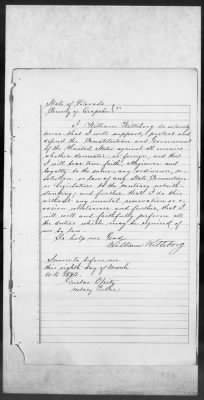 State of Colorado
County of Arapahoe } ss
I William Kittiborg do solemnly
swear that I will support, protect and
defend the Constitution and Government
of the United States against all enemies
whether domestic or foreign, and that
I will bear true faith, allegiance and
loyalty to the same, any ordinance, re-
solution or law of any State Convention
or Legislature to the contrary notwith-
standing; and further that I do this
without any mental reservation or e-
vasion whatsoever and further, that I
will well and faithfully perform all
the duties which may be required of
me by law.
So help me God
William
Sworn to before me
this eighth day of March
A.D. 1892.
Notary Public